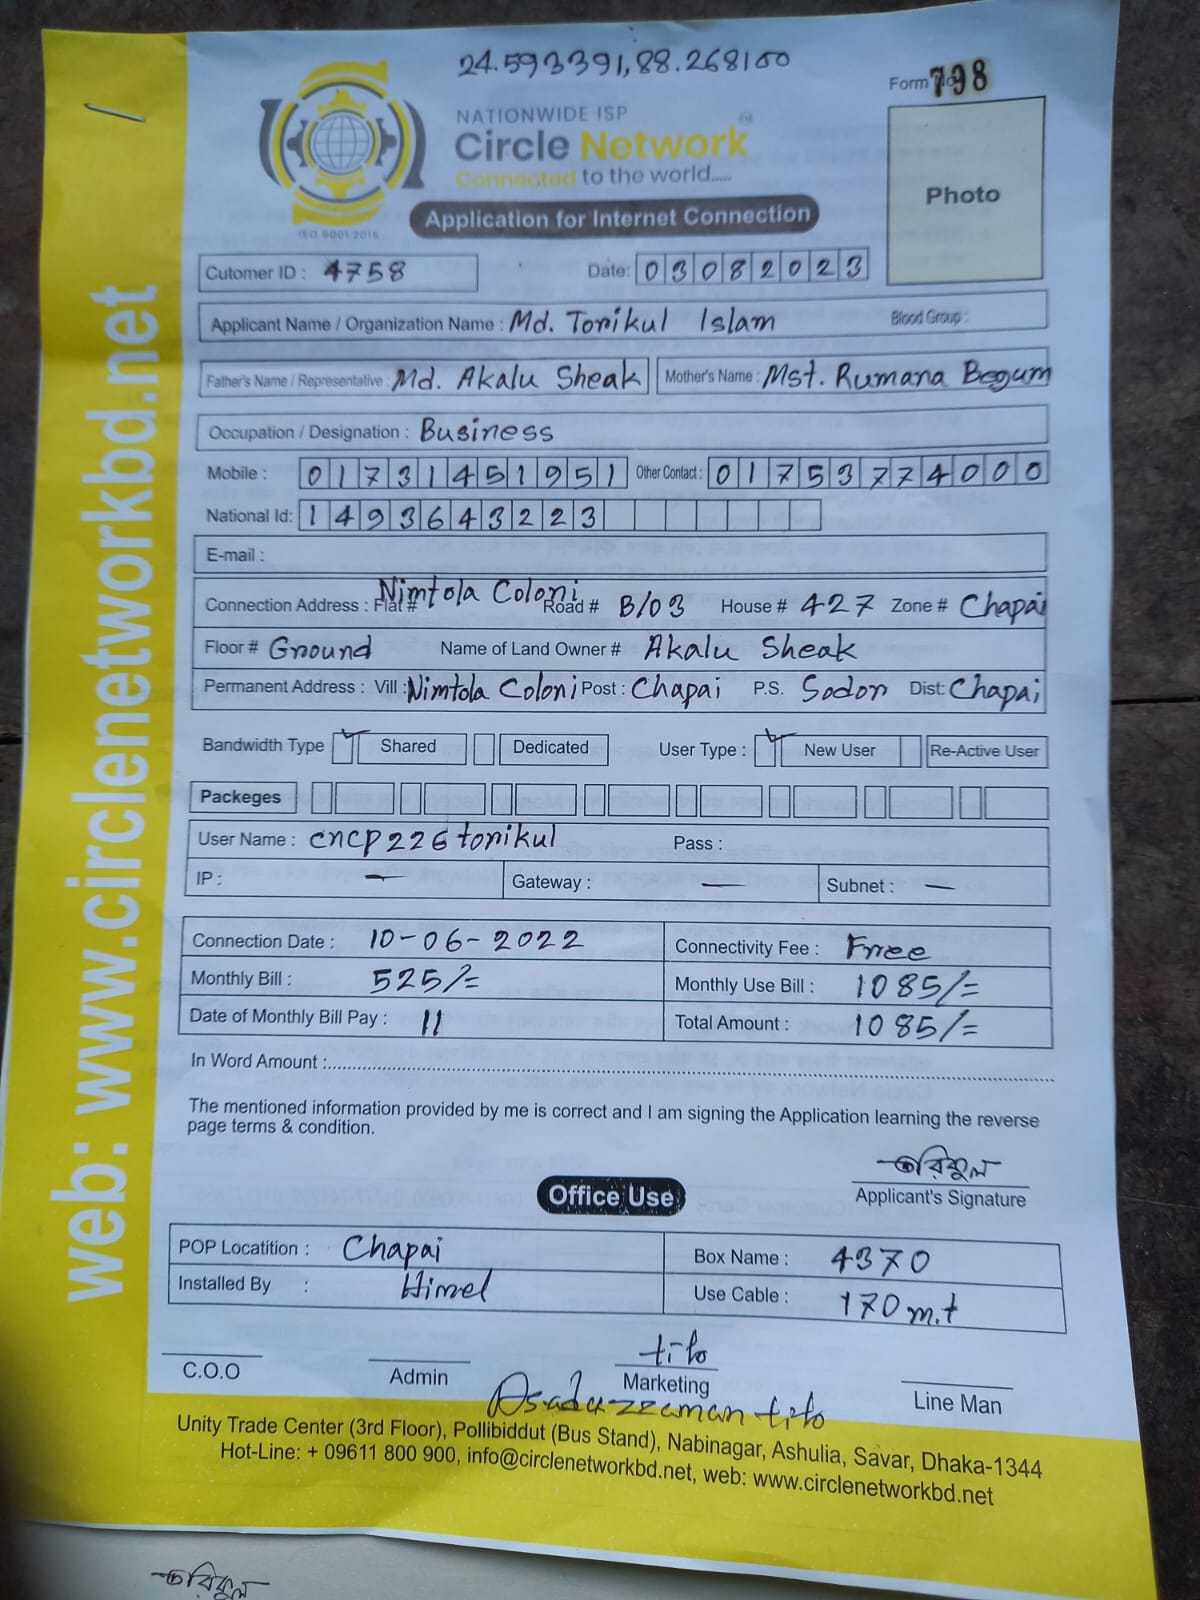 24.593391,88.268100
Form No 798
NATIONWIDE ISP
Circle Network
Connected to the world.....
ISO 9001:2015
Application for Internet Connection
Photo
Cutomer ID : 4758 Date: 03082023
Applicant Name / Organization Name : Md. Torikul Islam Blood Group :
Father's Name / Representative : Md. Akalu Sheak Mother's Name : Mst. Rumana Begum
Occupation / Designation : Business
Mobile : 01731451951 Other Contact : 01753774000
National Id: 1493643223
E-mail :
Connection Address : Flat # Nimtola Coloni Road # B/03 House # 427 Zone # Chapai
Floor # Ground Name of Land Owner # Akalu Sheak
Permanent Address : Vill : Nimtola Coloni Post : Chapai P.S. Sodor Dist: Chapai
Bandwidth Type Shared Dedicated User Type : New User Re-Active User
Packeges
User Name : cncp226torikul Pass :
IP : — Gateway : — Subnet : —
Connection Date : 10-06-2022 Connectivity Fee : Free
Monthly Bill : 525/= Monthly Use Bill : 1085/=
Date of Monthly Bill Pay : 11 Total Amount : 1085/=
In Word Amount :
The mentioned information provided by me is correct and I am signing the Application learning the reverse
page terms & condition.
তরিকুল
Applicant's Signature
Office Use
POP Locatition : Chapai Box Name : 4370
Installed By : Himel Use Cable : 170 m.t
tito
C.O.O Admin Marketing Line Man
Asaduzzaman tito
Unity Trade Center (3rd Floor), Pollibiddut (Bus Stand), Nabinagar, Ashulia, Savar, Dhaka-1344
Hot-Line: + 09611 800 900, info@circlenetworkbd.net, web: www.circlenetworkbd.net
web: www.circlenetworkbd.net
তরিকুল